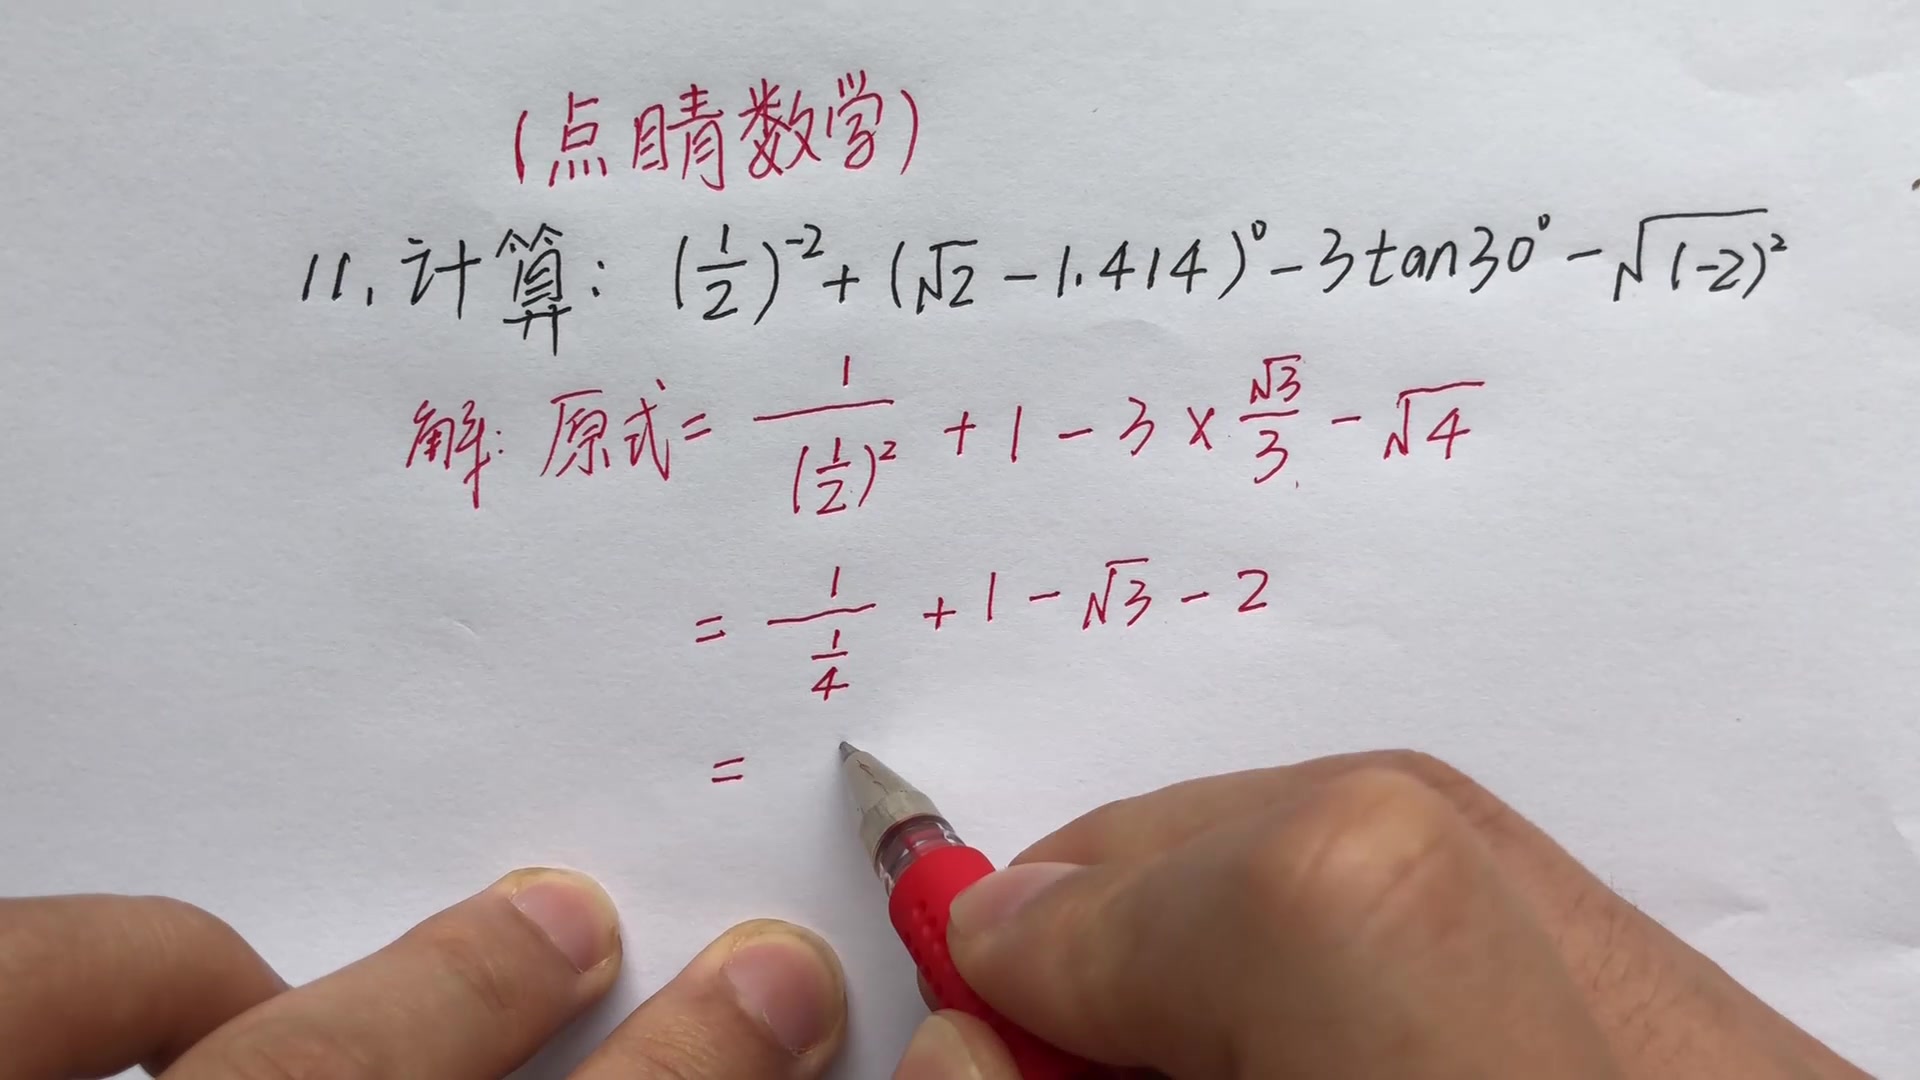 (点睛数学)
11. 计算: (1/2)⁻² + (√2 - 1.414)⁰ - 3tan30° - √(-2)²
解: 原式 = 1/(1/2)² + 1 - 3 × √3/3 - √4
= 1/(1/4) + 1 - √3 - 2
=